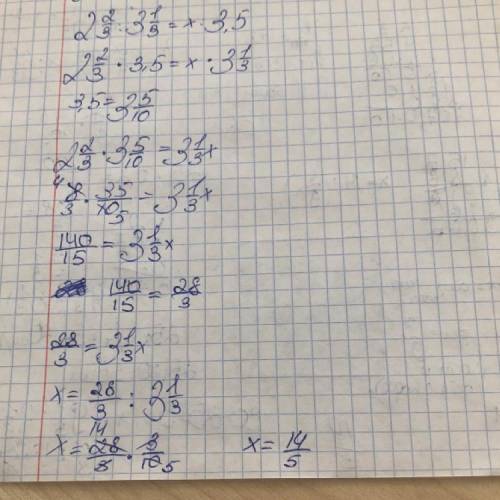 2 2/3 : 3 1/3 = x : 3,5
2 2/3 · 3,5 = x · 3 1/3
3,5 = 3 5/10
2 2/3 · 3 5/10 = 3 1/3 x
4 8/3 · 35/10 5 = 3 1/3 x
140/15 = 3 1/3 x
140/15 = 28/3
28/3 = 3 1/3 x
x = 28/3 : 3 1/3
x = 14 28/3 · 3/10 5 x = 14/5